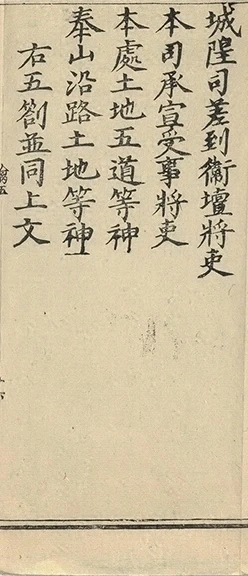 城隍司差到衛壇將吏
本司承宣受事將吏
本處土地五道等神
奉山沿路土地等神
右五劄並同上文